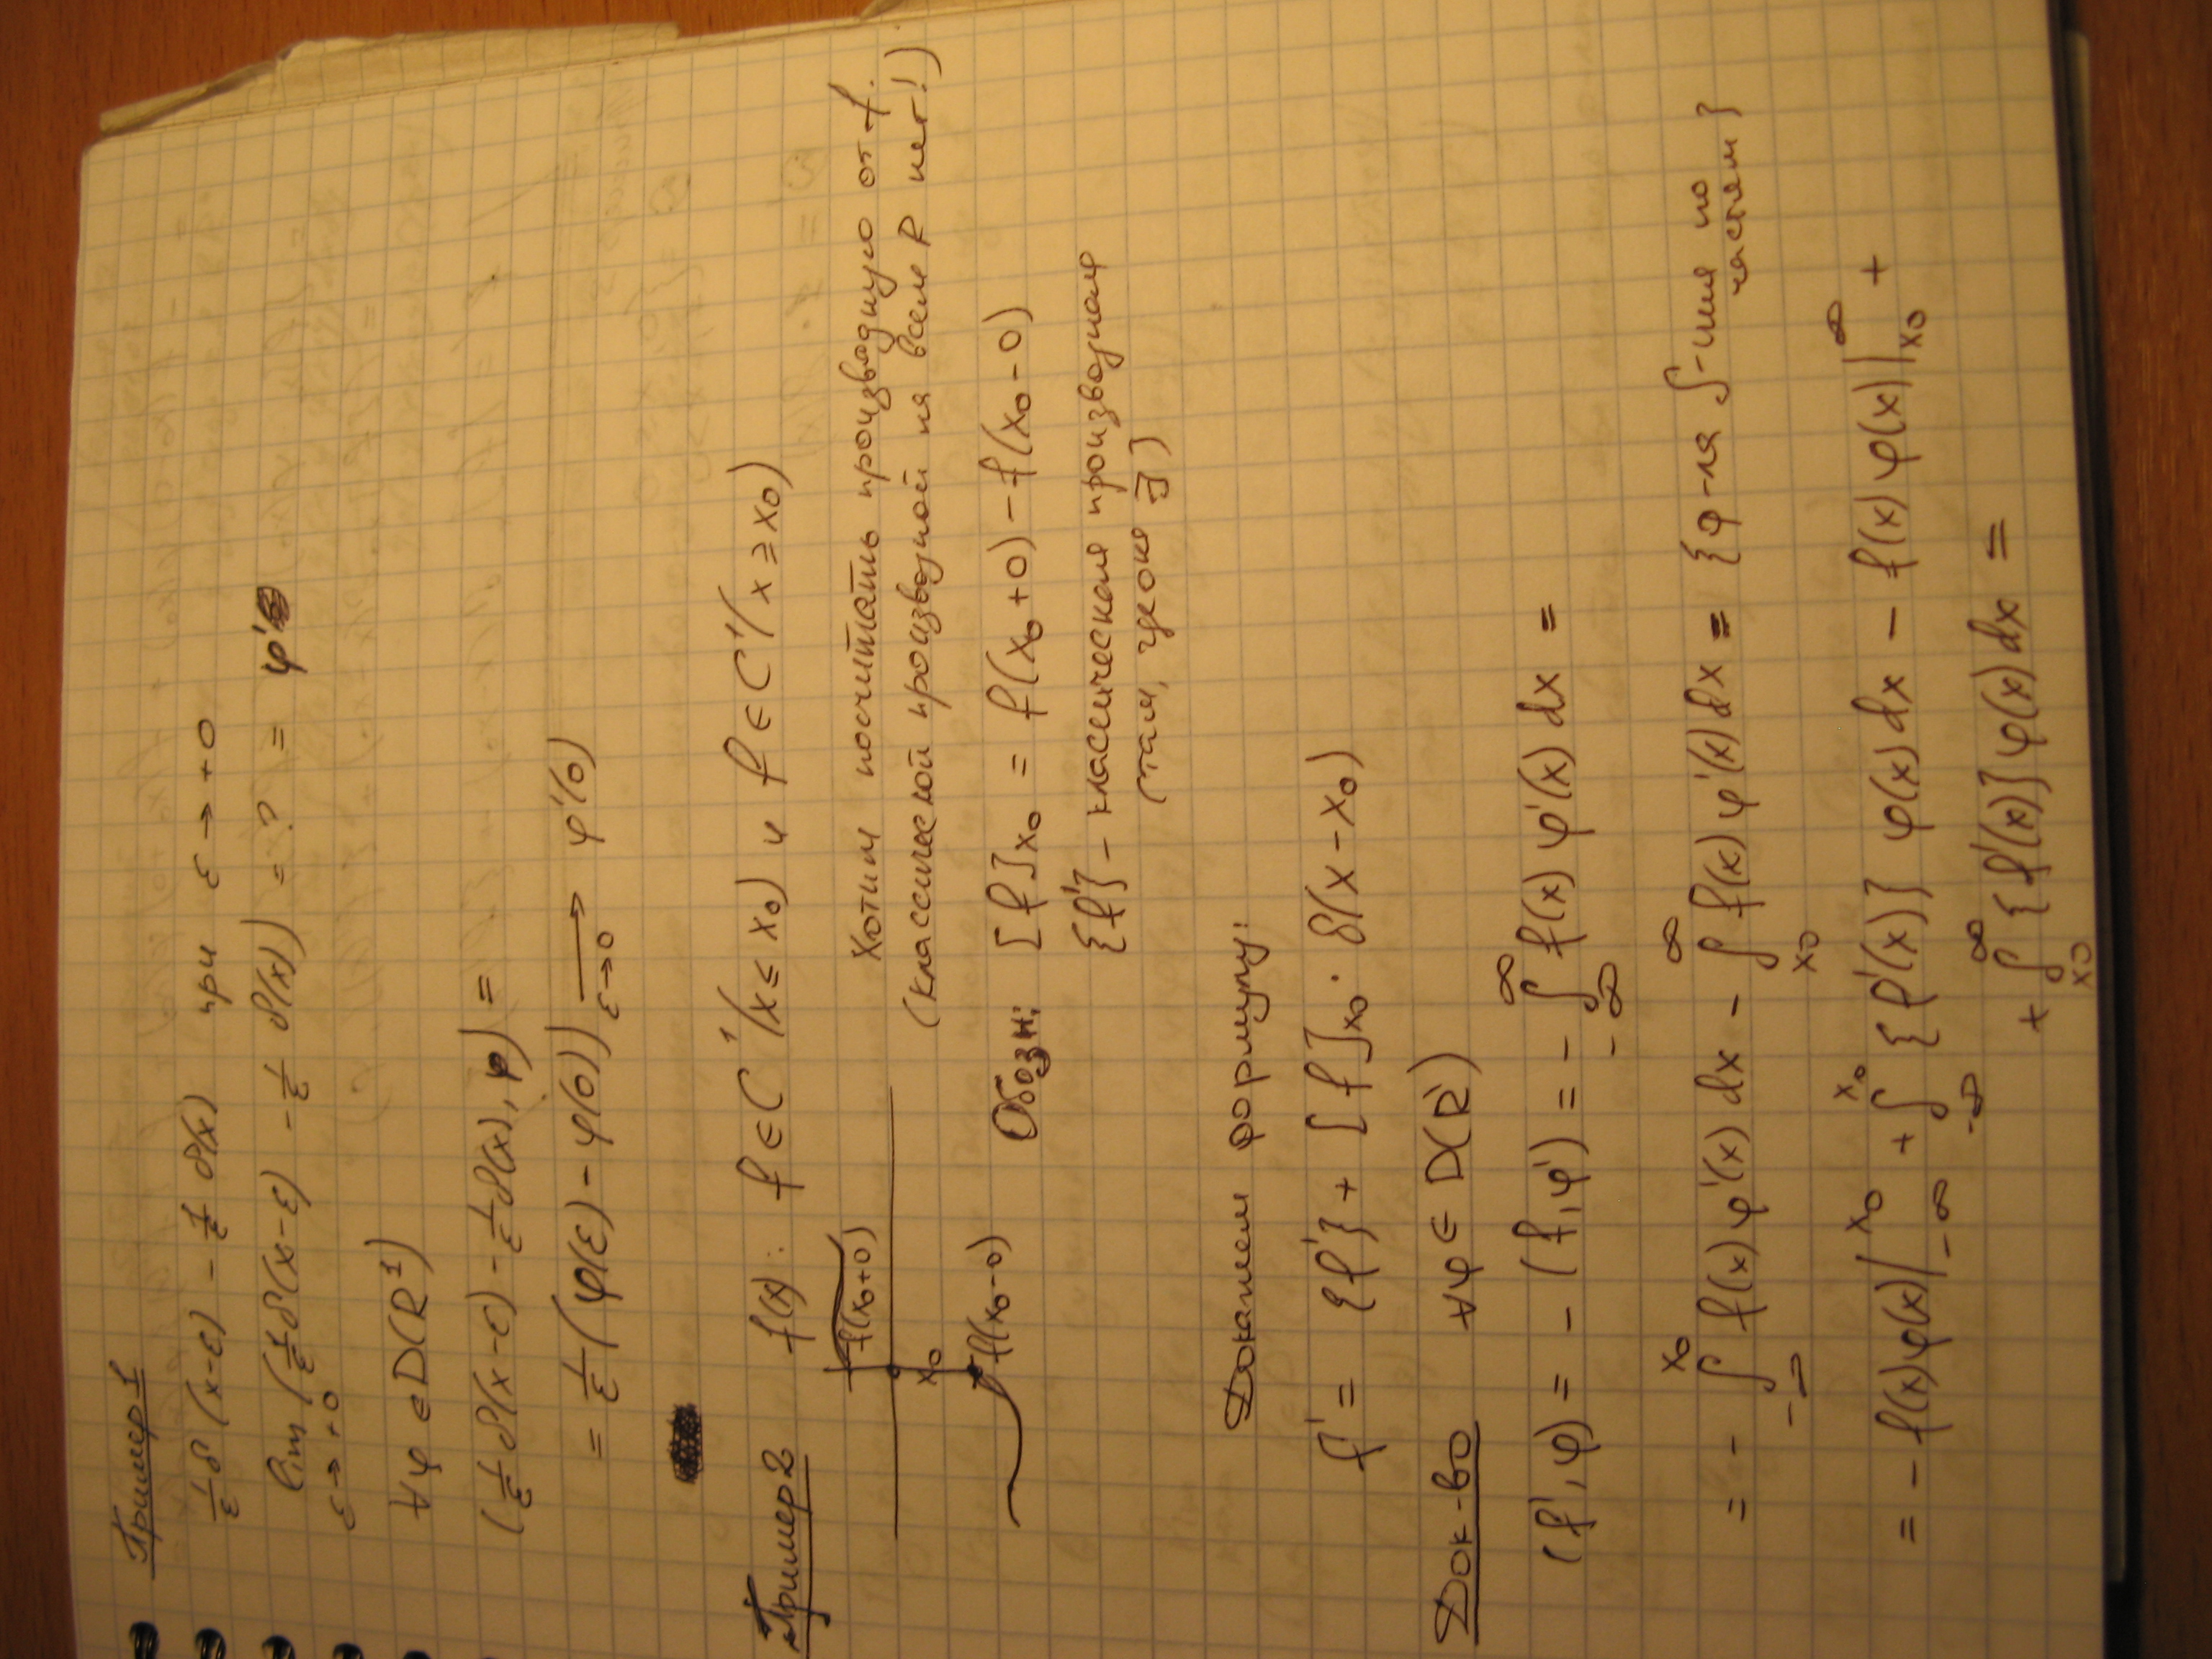 Пример 1
1/ε δ(x-ε) - 1/ε δ(x) при ε → +0
lim ε→+0 (1/ε δ(x-ε) - 1/ε δ(x)) = ? = φ'
∀φ ∈ D(R¹)
(1/ε δ(x-ε) - 1/ε δ(x), φ) =
= 1/ε (φ(ε) - φ(0)) ⟶ ε→0 φ'(0)
Пример 2 f(x): f ∈ C¹(x ≤ x₀) и f ∈ C¹(x ≥ x₀)
f(x₀+0)
x₀
f(x₀-0)
Хотим посчитать производную от f.
(классической производной на всем R нет!)
Обозн: [f]x₀ = f(x₀+0) - f(x₀-0)
{f'} - классическая производная
(там, где она ∃)
Докажем формулу:
f' = {f'} + [f]x₀ · δ(x-x₀)
Док-во ∀φ ∈ D(R¹)
(f', φ) = - (f, φ') = - ∫_{-∞}^{∞} f(x) φ'(x) dx =
= - ∫_{-∞}^{x₀} f(x) φ'(x) dx - ∫_{x₀}^{∞} f(x) φ'(x) dx = {ф-ла ∫-ния по частям}
= - f(x) φ(x)|_{-∞}^{x₀} + ∫_{-∞}^{x₀} {f'(x)} φ(x) dx - f(x) φ(x)|_{x₀}^{∞} +
+ ∫_{x₀}^{∞} {f'(x)} φ(x) dx =